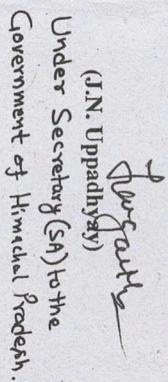 (J.N. Uppadhyay)
Under Secretary (SA) to the
Government of Himachal Pradesh.